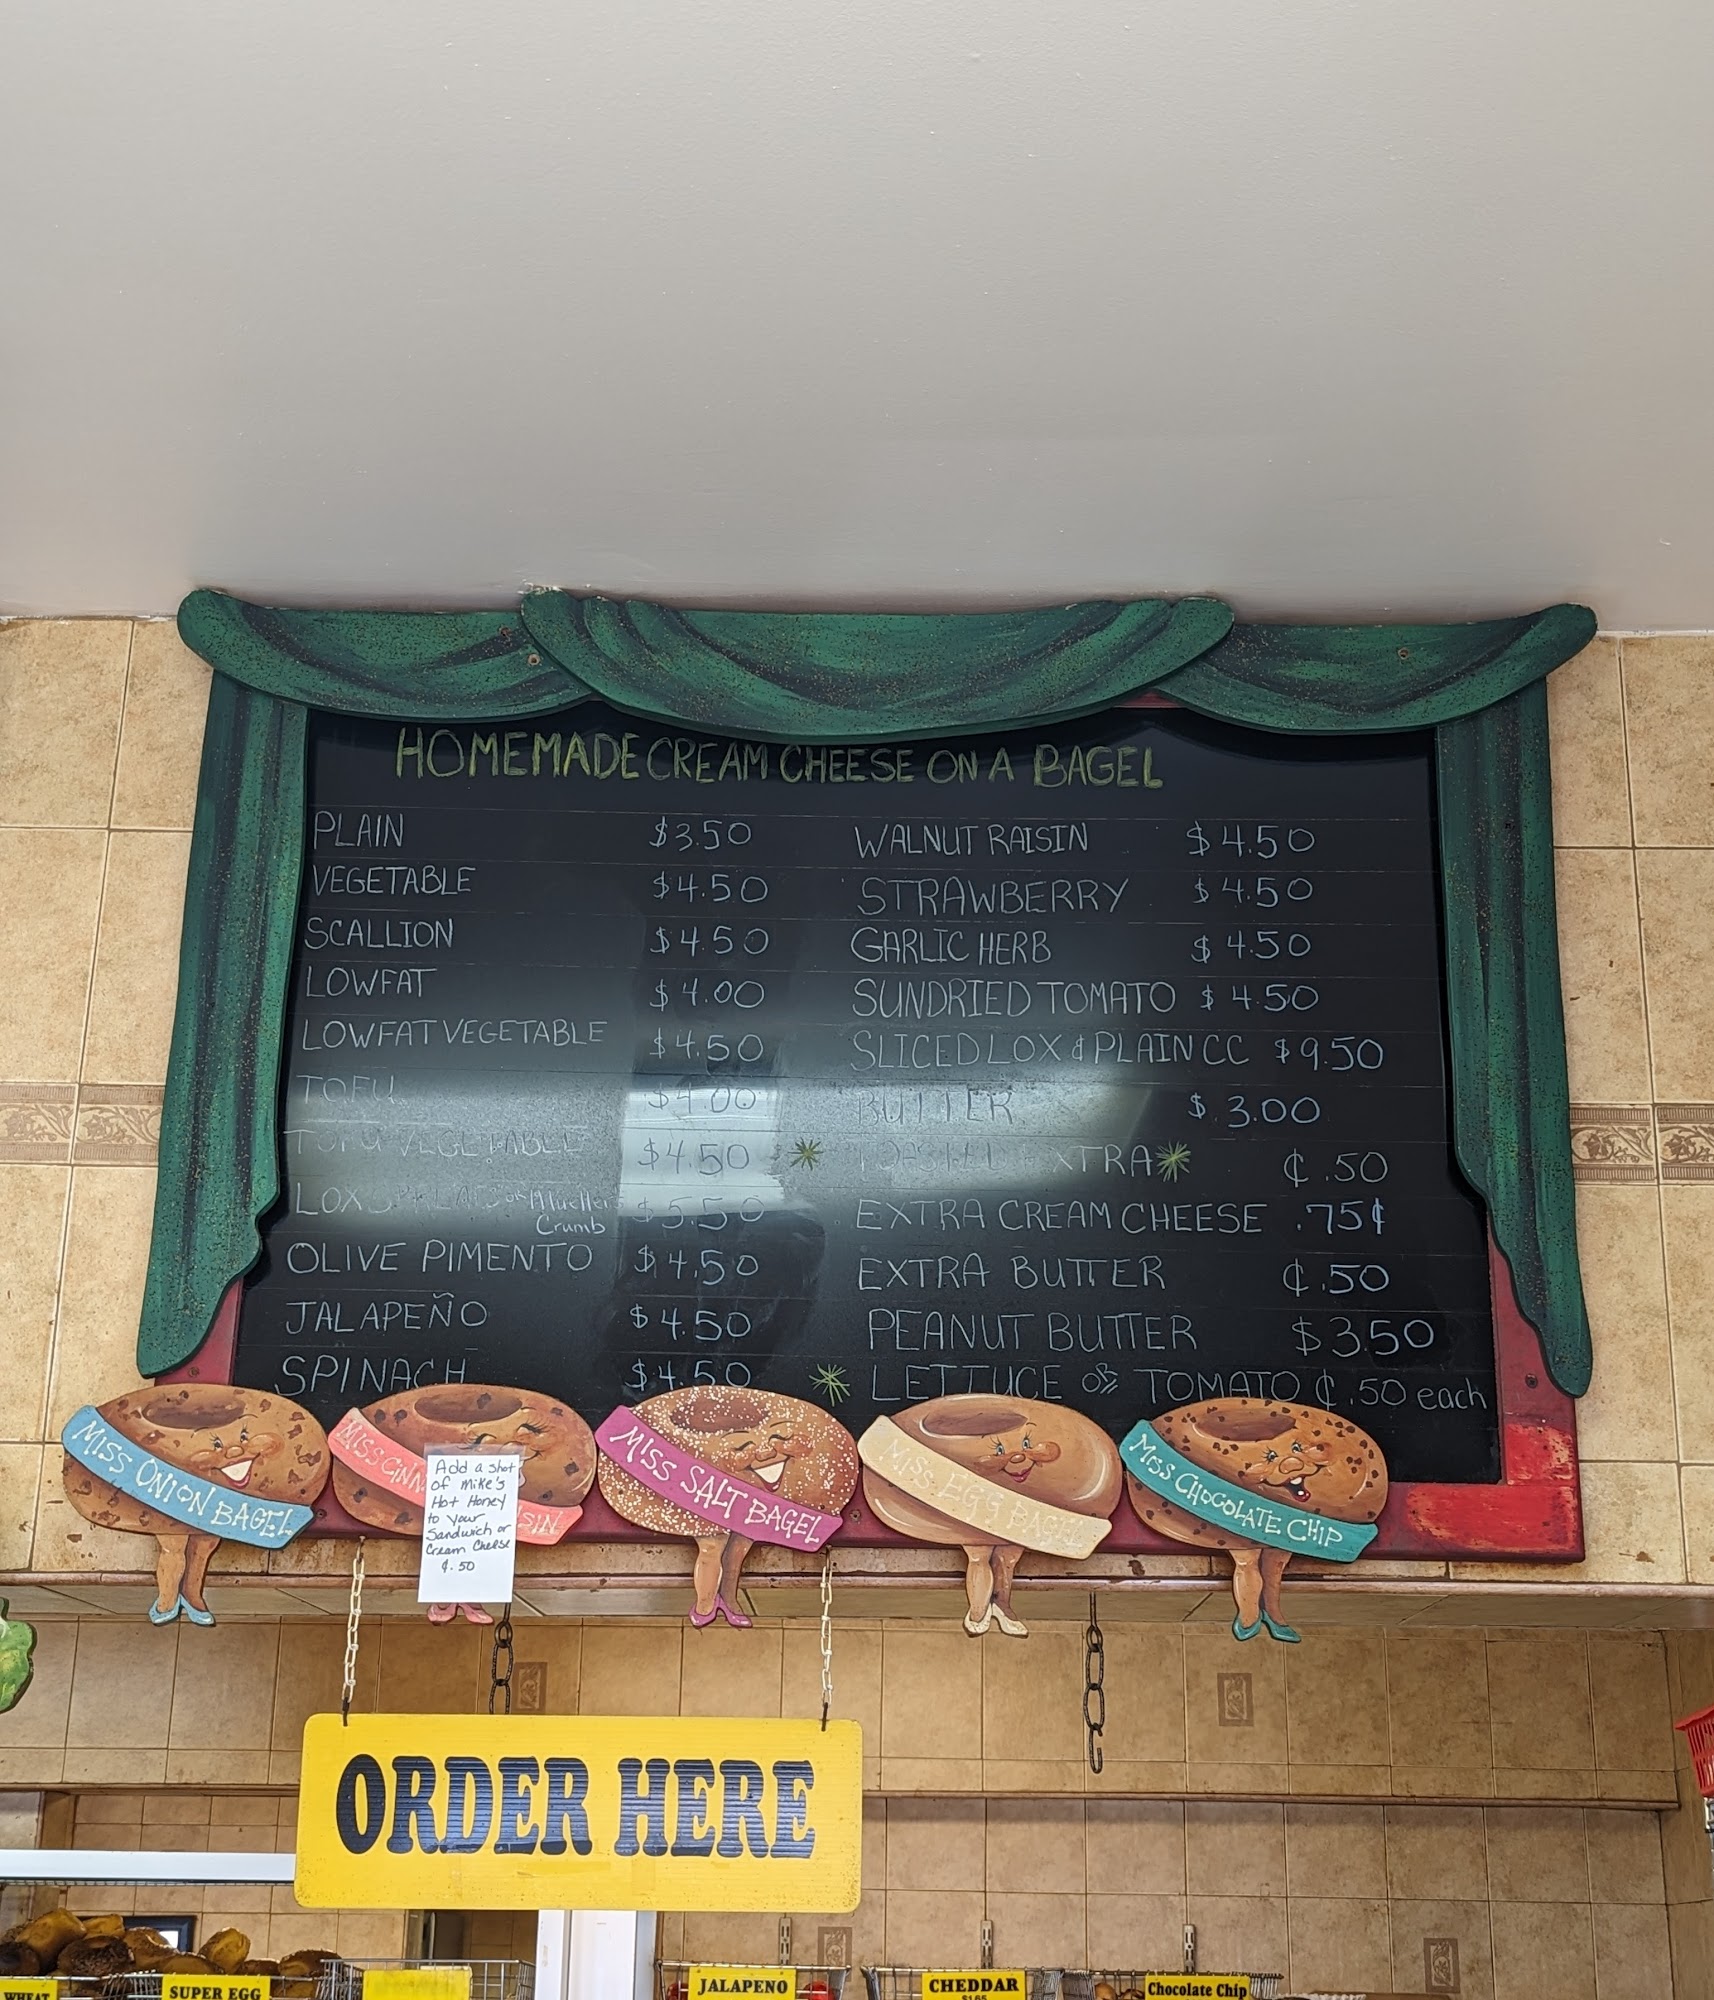 HOMEMADE CREAM CHEESE ON A BAGEL
PLAIN $3.50
VEGETABLE $4.50
SCALLION $4.50
LOWFAT $4.00
LOWFAT VEGETABLE $4.50
TOFU $4.00
TOFU VEGETABLE $4.50
LOX SPREAD or Mueller's $5.50
Crumb
OLIVE PIMENTO $4.50
JALAPEÑO $4.50
SPINACH $4.50
WALNUT RAISIN $4.50
STRAWBERRY $4.50
GARLIC HERB $4.50
SUNDRIED TOMATO $4.50
SLICED LOX & PLAIN CC $9.50
BUTTER $3.00
EXTRA ¢.50
EXTRA CREAM CHEESE .75¢
EXTRA BUTTER ¢.50
PEANUT BUTTER $3.50
LETTUCE or TOMATO ¢.50 each
MISS ONION BAGEL
MISS
MISS SALT BAGEL
MISS EGG BAGEL
MISS CHOCOLATE CHIP
Add a shot
of Mike's
Hot Honey
to your
Sandwich or
Cream Cheese
¢.50
ORDER HERE
WHEAT
SUPER EGG
JALAPENO
CHEDDAR
$1.65
Chocolate Chip